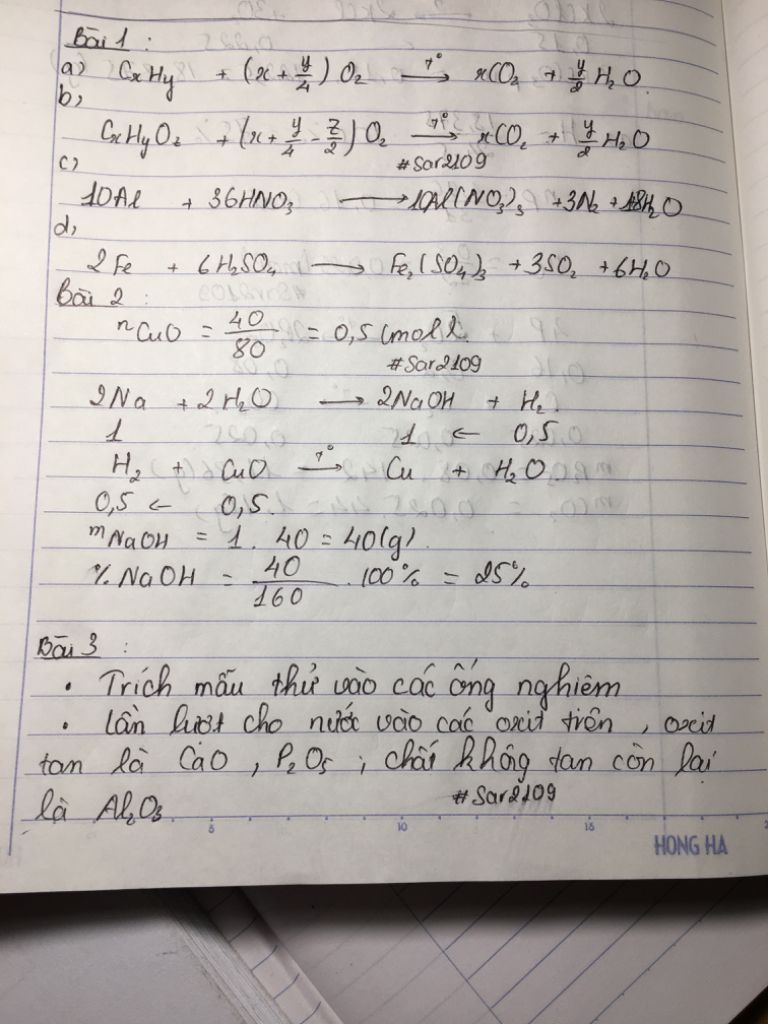 Bài 1 :
a) CxHy + (x + y/4) O₂ —t°→ xCO₂ + y/2 H₂O.
b)
CxHyOz + (x + y/4 - z/2) O₂ —t°→ xCO₂ + y/2 H₂O
#Sar2109
c)
10Al + 36HNO₃ → 10Al(NO₃)₃ + 3N₂ + 18H₂O
d)
2Fe + 6H₂SO₄ → Fe₂(SO₄)₃ + 3SO₂ + 6H₂O
Bài 2 :
nCuO = 40/80 = 0,5 (mol).
#Sar2109
2Na + 2H₂O → 2NaOH + H₂.
1 1 ← 0,5.
H₂ + CuO —t°→ Cu + H₂O.
0,5 ← 0,5.
mNaOH = 1. 40 = 40(g).
% NaOH = 40/160 .100% = 25%
Bài 3 :
• Trích mẫu thử vào các ống nghiêm
• Lần lượt cho nước vào các oxit trên , oxit
tan là CaO , P₂O₅ ; chất không tan còn lại
là Al₂O₃
#Sar2109
5 10 15
HONG HA